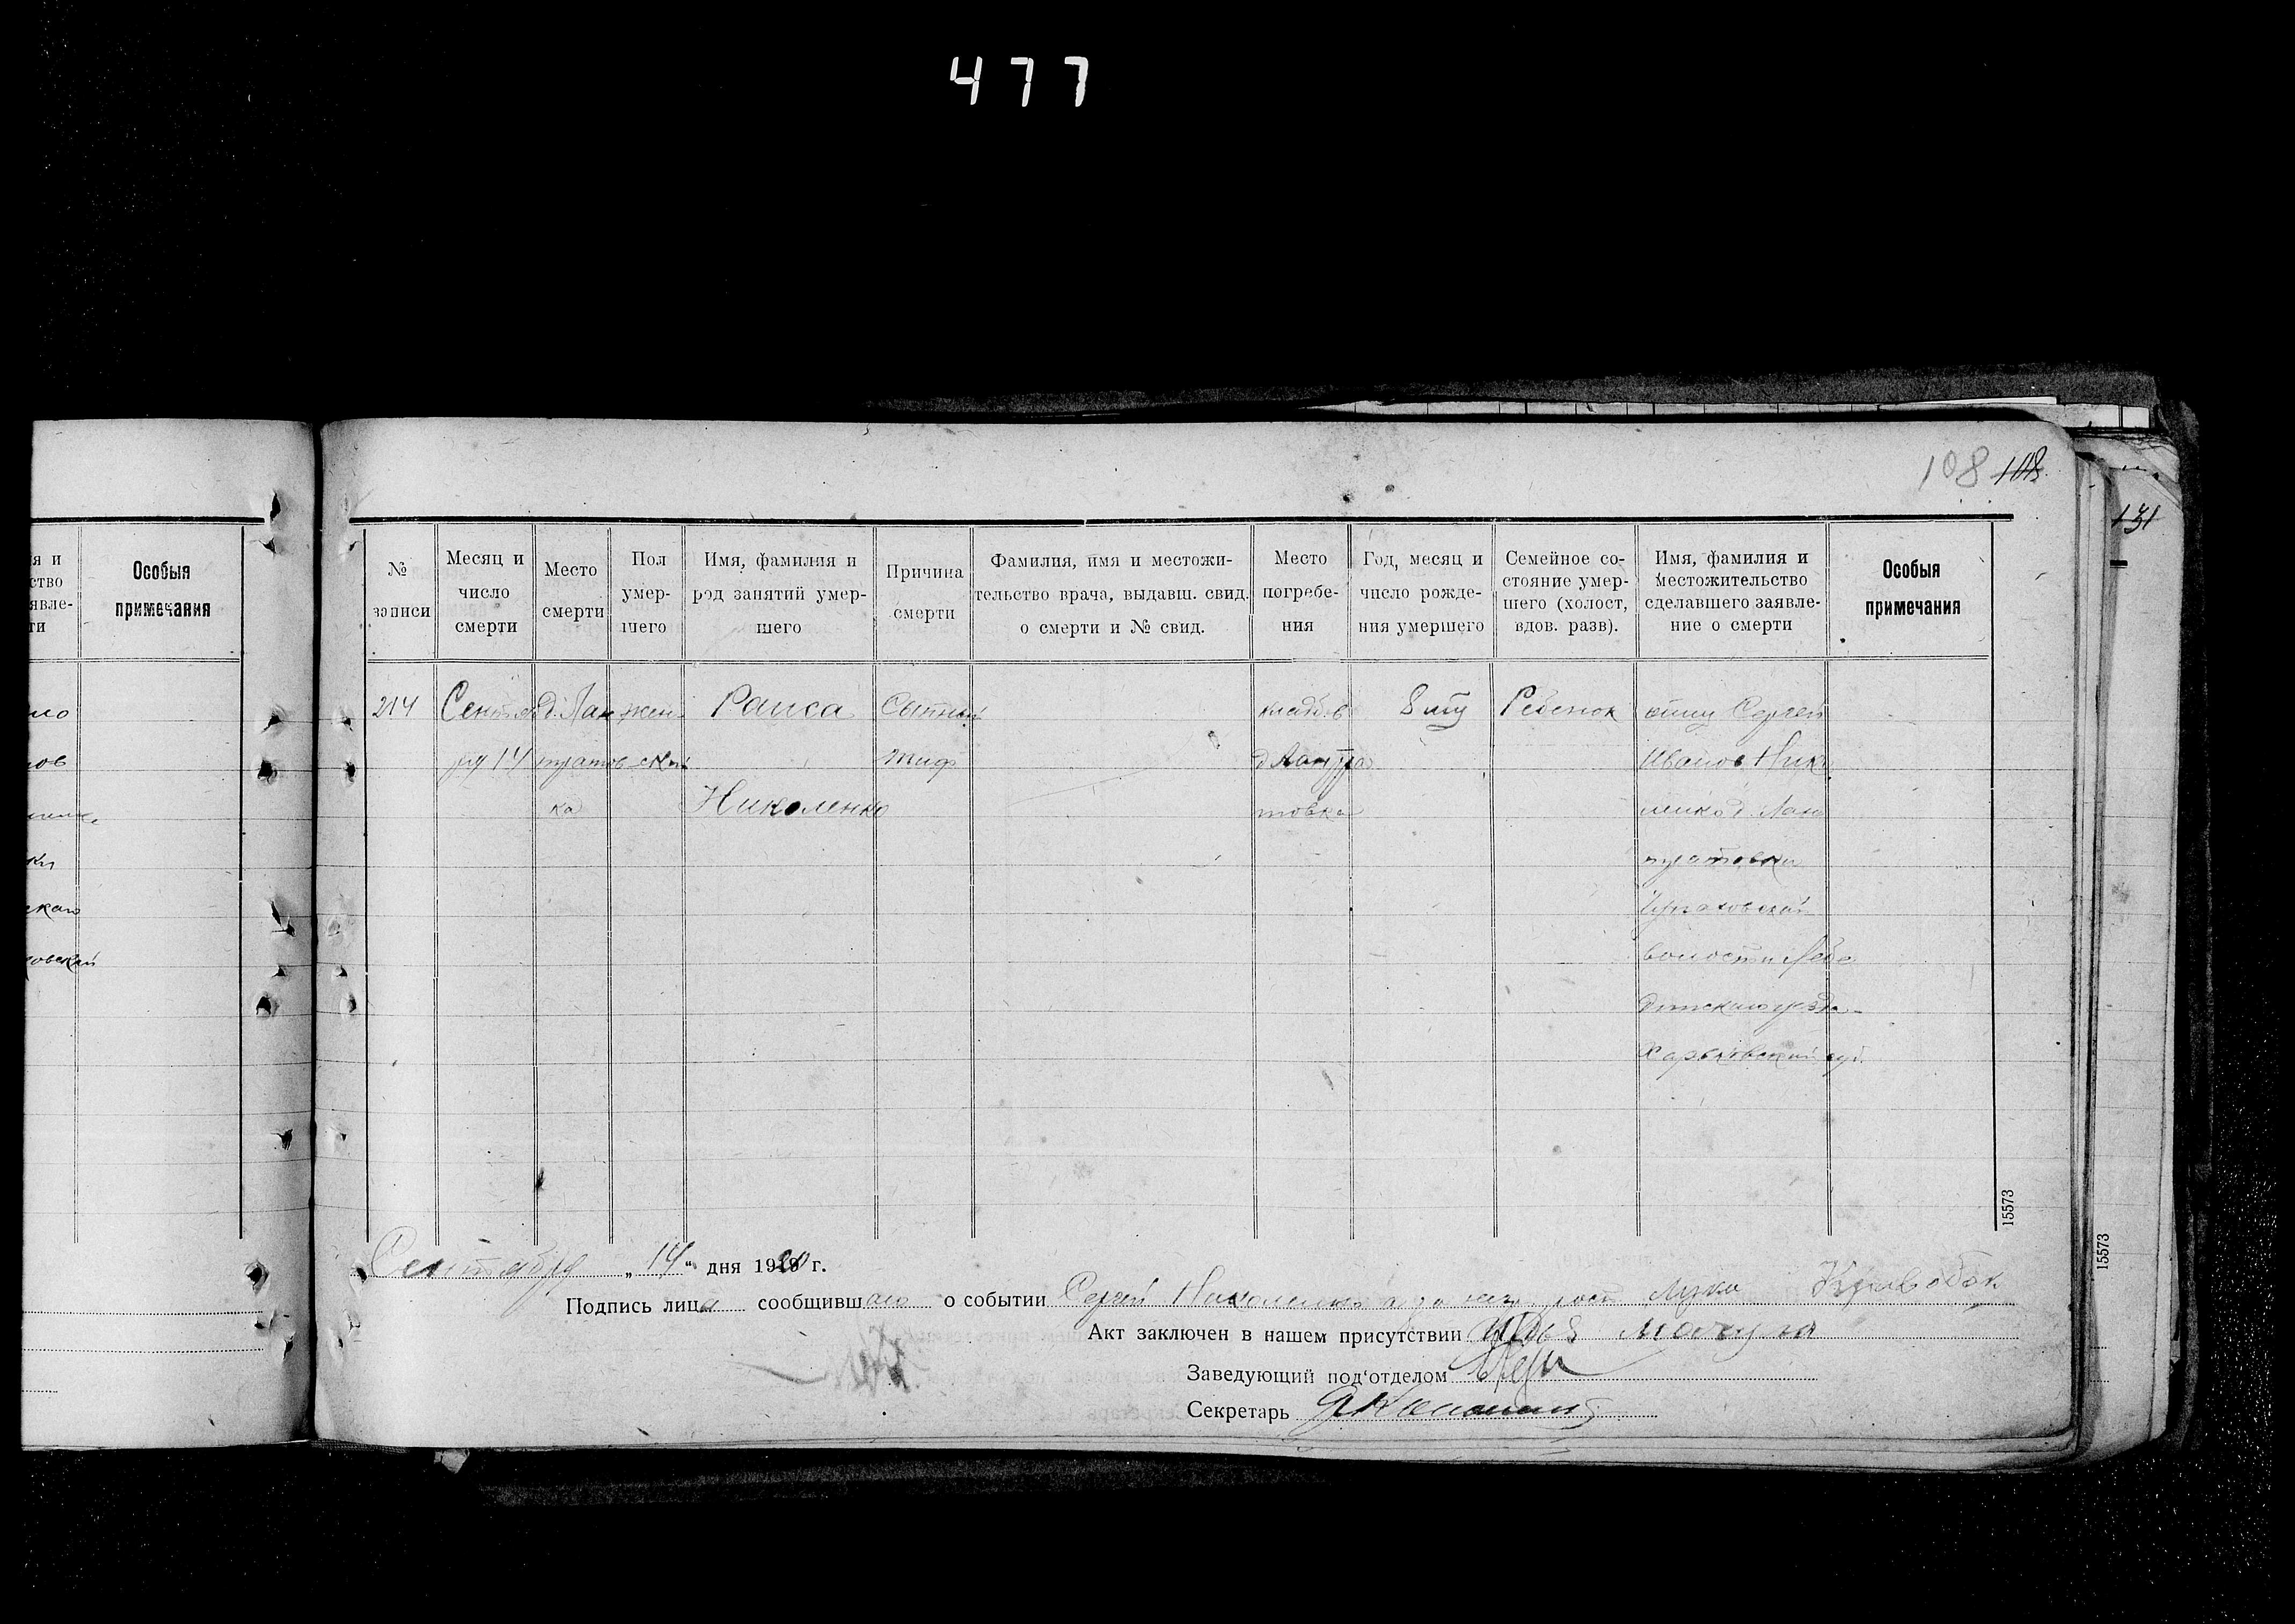 477
108 108
131
я и
ство
явле-
ти
Особыя
примечания
№
записи
Месяц и
число
смерти
Место
смерти
Пол
умер-
шего
Имя, фамилия и
род занятий умер-
шего
Причина
смерти
Фамилия, имя и местожи-
тельство врача, выдавш. свид.
о смерти и № свид.
Место
погребе-
ния
Год, месяц и
число рожде-
ния умершего
Семейное со-
стояние умер-
шего (холост,
вдов. разв).
Имя, фамилия и
местожительство
сделавшего заявле-
ние о смерти
Особыя
примечания
214
Сентяб
ря 14
д. Лан
тратов
ка
жен
ский
Раиса
Николенко
Сыпный
тиф
кладб. в
д Лантра
товка
8 лет
Ребенок
отец Сергей
Иванов Нико
ленко д. Лан
тратовки
волости Лебе
динского уезда
Харьковской губ.
15573
15573
Сентября „14“ дня 1920 г.
Подпись лица сообщившаго о событии Сергей Николенко а за нег рост Лука Кривобок
Акт заключен в нашем присутствии
Заведующий под'отделом
Секретарь